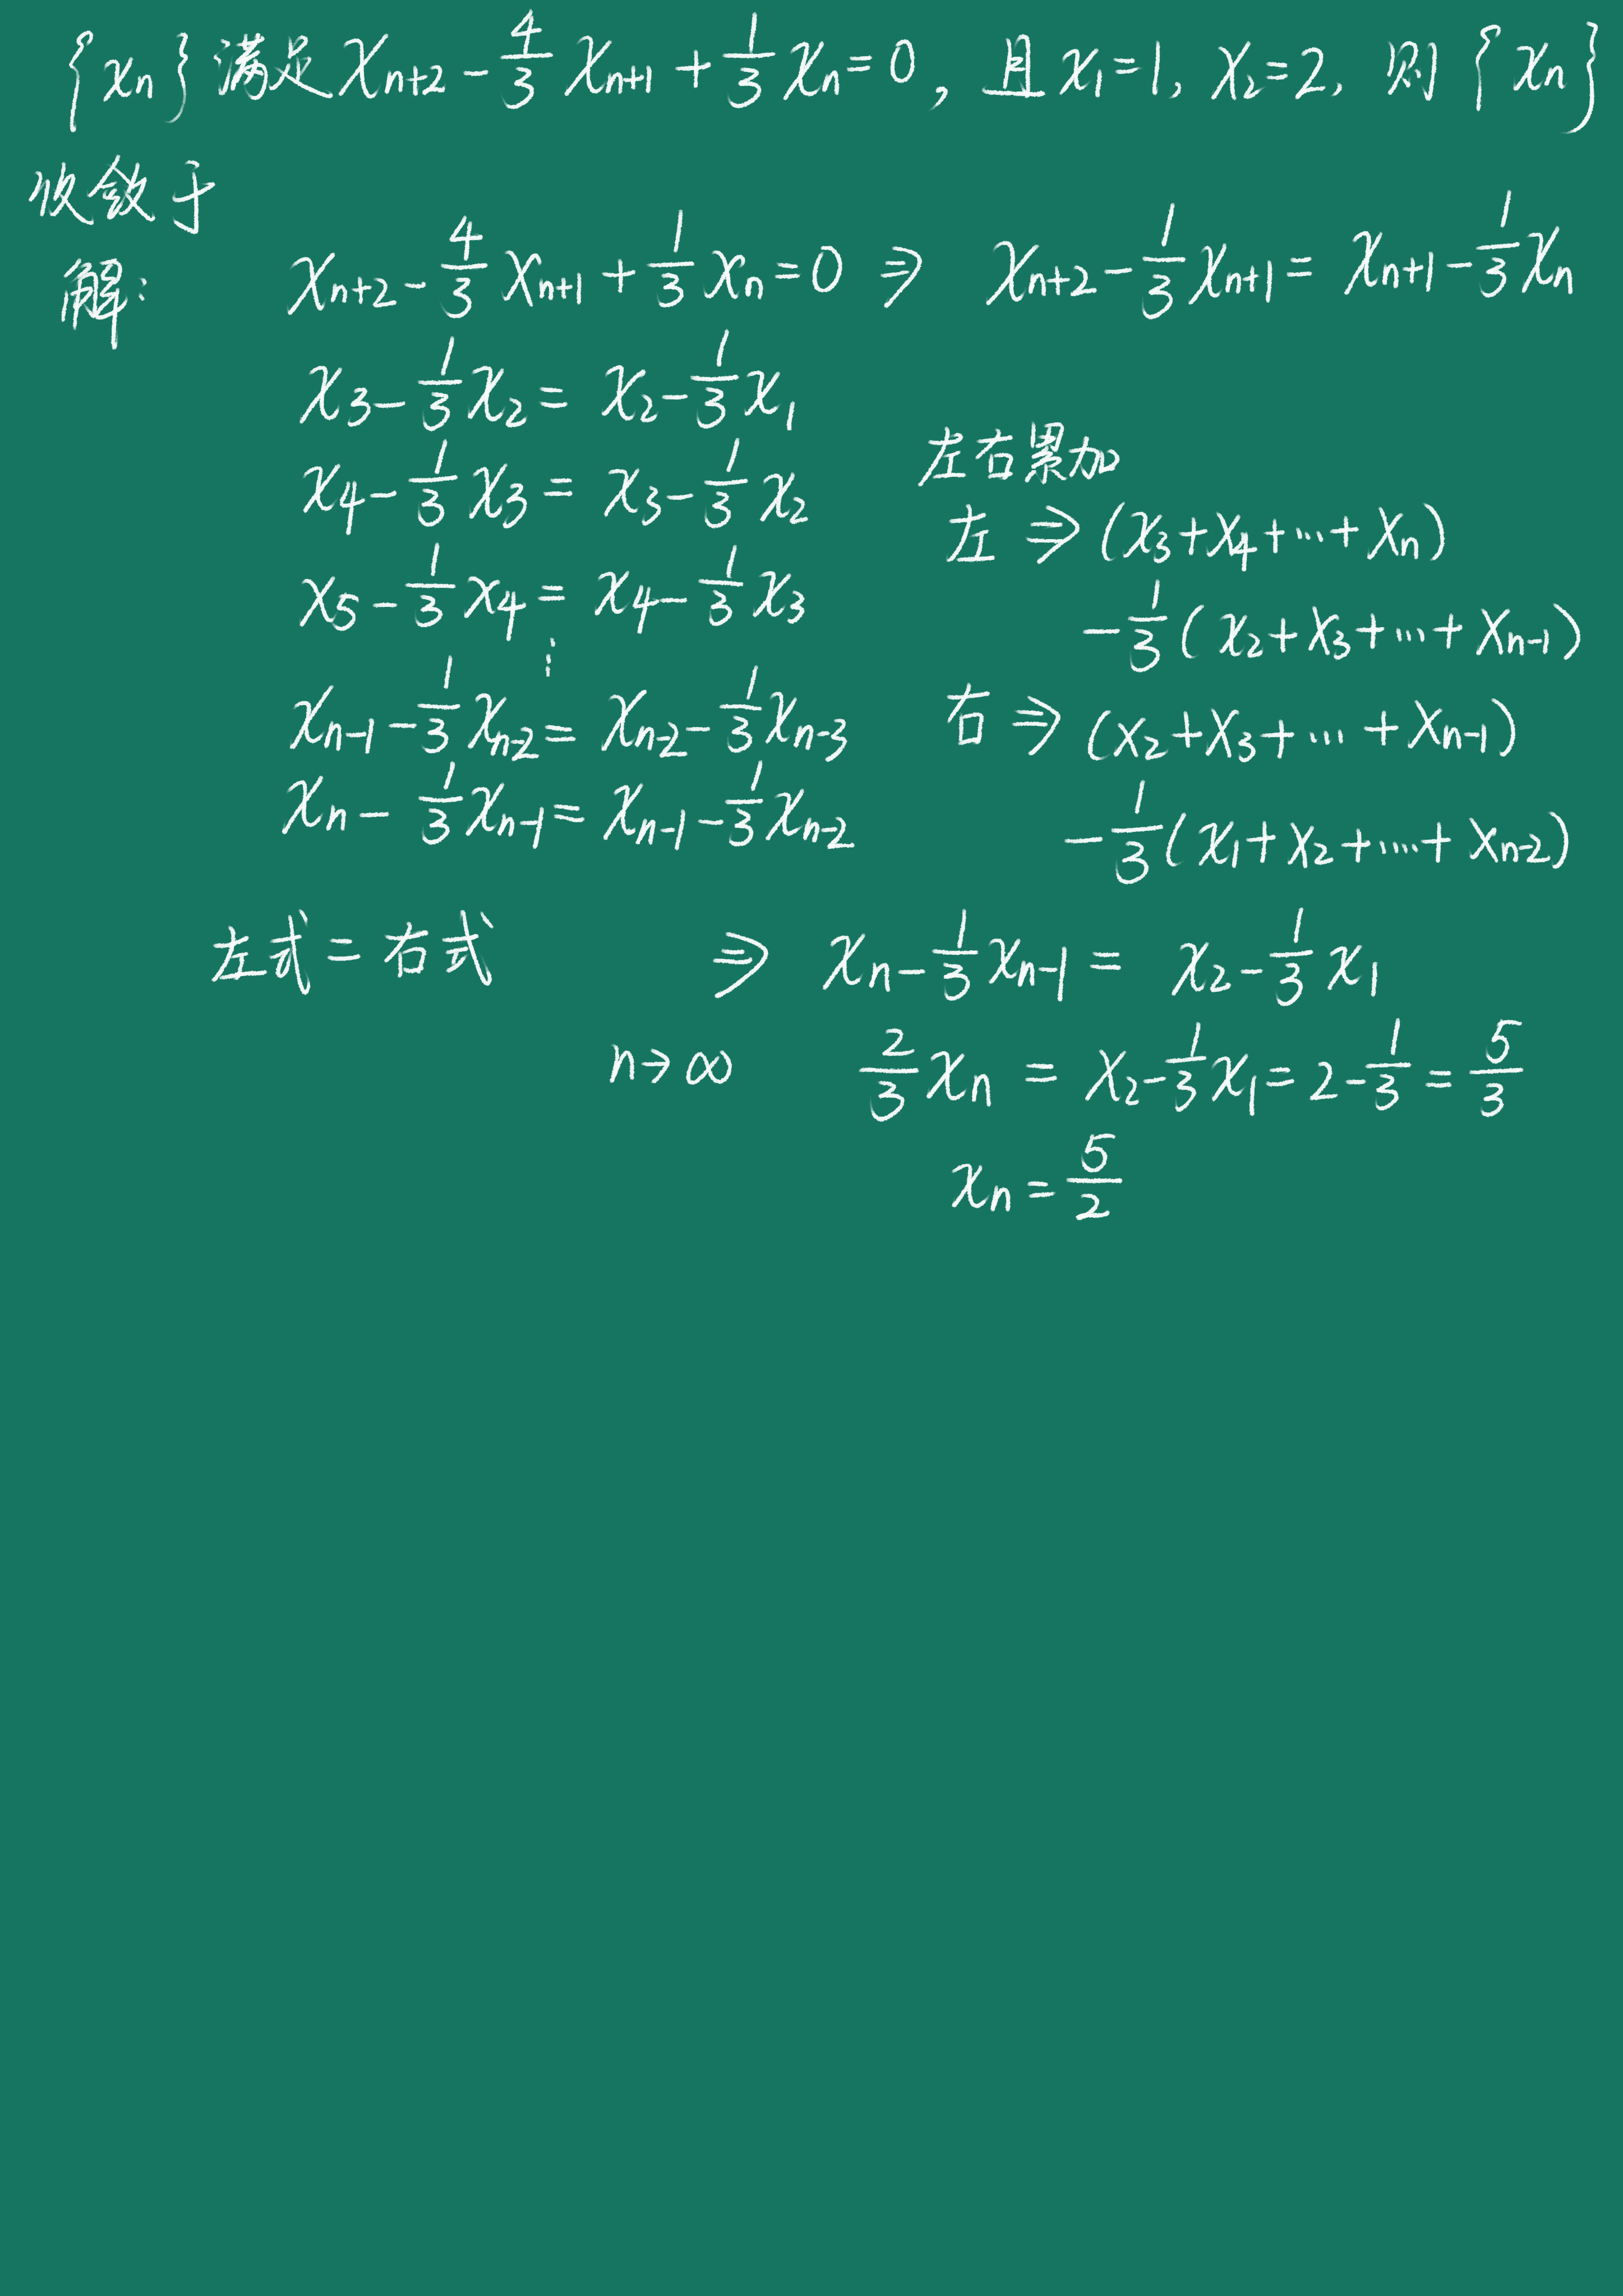 {xn}满足 xn+2 - 4/3 xn+1 + 1/3 xn = 0, 且 x1=1, x2=2, 则 {xn}
收敛于
解: xn+2 - 4/3 xn+1 + 1/3 xn = 0 ⇒ xn+2 - 1/3 xn+1 = xn+1 - 1/3 xn
x3 - 1/3 x2 = x2 - 1/3 x1
左右累加
x4 - 1/3 x3 = x3 - 1/3 x2
左 ⇒ (x3+x4+…+xn)
x5 - 1/3 x4 = x4 - 1/3 x3
- 1/3 (x2+x3+…+xn-1)
⋮
xn-1 - 1/3 xn-2 = xn-2 - 1/3 xn-3
右 ⇒ (x2+x3+…+xn-1)
xn - 1/3 xn-1 = xn-1 - 1/3 xn-2
- 1/3 (x1+x2+……+xn-2)
左式 = 右式 ⇒ xn - 1/3 xn-1 = x2 - 1/3 x1
n→∞ 2/3 xn = x2 - 1/3 x1 = 2 - 1/3 = 5/3
xn = 5/2